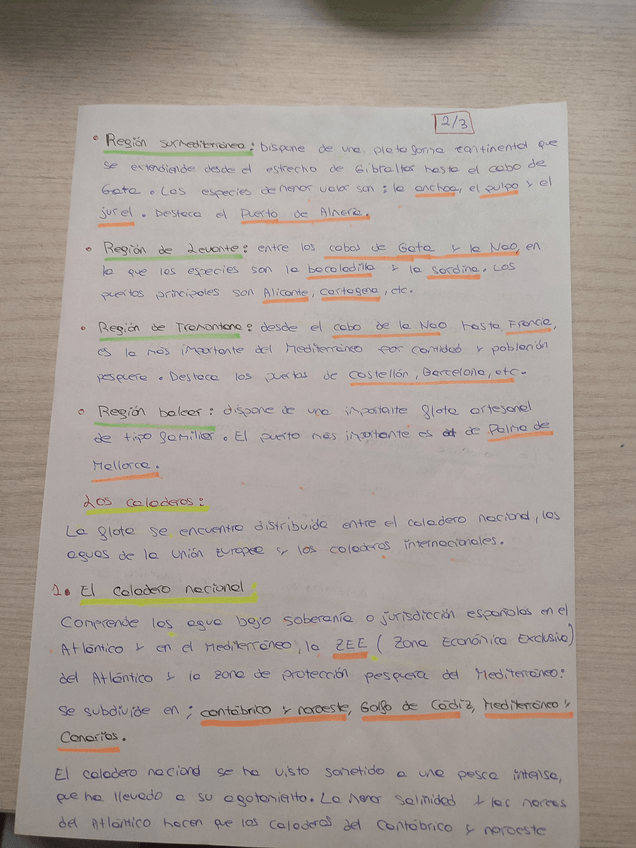 2/3
• Región surmediterránea: Dispone de una plataforma continental que
se extendiende desde el estrecho de Gibraltar hasta el cabo de
Gata. Las especies de menor valor son: la anchoa, el pulpo y el
jurel. Destaca el Puerto de Almería.
• Región de Levante: entre los cabos de Gata y la Nao, en
la que las especies son la bacaladilla y la sardina. Los
puertos principales son Alicante, Cartagena, etc.
• Región de Tramontana: desde el cabo de la Nao hasta Francia,
es la más importante del Mediterráneo por cantidad y población
pesquera. Destaca los puertos de Castellón, Barcelona, etc.
• Región balear: dispone de una importante flota artesanal
de tipo familiar. El puerto más importante es de Palma de
Mallorca.
Los caladeros:
La flota se encuentra distribuida entre el caladero nacional, las
aguas de la Unión Europea y los caladeros internacionales.
1. El caladero nacional:
Comprende las agua bajo soberanía o jurisdicción españolas en el
Atlántico y en el Mediterráneo, la ZEE (Zona Económica Exclusiva)
del Atlántico y la zona de protección pesquera del Mediterráneo:
se subdivide en; cantábrico y noroeste, Golfo de Cádiz, Mediterráneo y
Canarias.
El caladero nacional se ha visto sometido a una pesca intensa,
que ha llevado a su agotamiento. La menor salinidad y las mareas
del Atlántico hacen que los caladeros del Cantábrico y noroeste